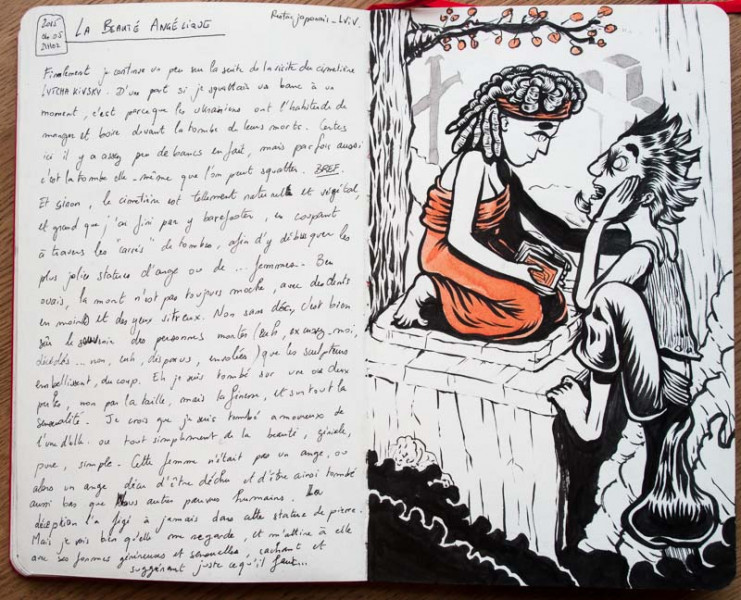 2015
04 05
21h02
LA BEAUTÉ ANGÉLIQUE
Restau japonais - LVIV.
Finalement, je continue un peu sur la suite de la visite du cimetière
LUTCHAKIVSKY. D'une part si je squattais un banc à un
moment, c'est parce que les ukrainiens ont l'habitude de
manger et boire devant la tombe de leurs morts. Certes
ici il y a assez peu de bancs en fait, mais parfois aussi
c'est la tombe elle-même que l'on peut squatter. BREF.
Et sinon, le cimetière est tellement naturel et végétal,
et grand que j'ai fini par y barefooter, en coupant
à travers les "carrés" de tombes, afin d'y débusquer les
plus jolies statues d'ange ou de ... femmes. Ben
ouais, la mort n'est pas toujours moche avec des dents
en moins et des yeux vitreux. Non sans déc, c'est bien
sûr le des personnes mortes (euh, excusez-moi,
décédés... non, euh, disparus, envolées) que les sculpteurs
embellissent, du coup. Et je suis tombé sur une ou deux
non par la taille, mais la finesse, et surtout la
sensualité. Je crois que je suis tombé amoureux de
l'une d'elle. ou tout simplement de la beauté, géniale,
pure, simple. Cette femme n'était pas un ange, ou
alors un ange déçu d'être déchu et d'être ainsi tombé
aussi bas que nous autres pauvres humains. La
déception l'a figé à jamais dans cette statue de pierre.
Mais je vois bien qu'elle me regarde, et m'attire à elle
avec ses formes généreuses et sensuelles, cachant et
suggérant juste ce qu'il faut...